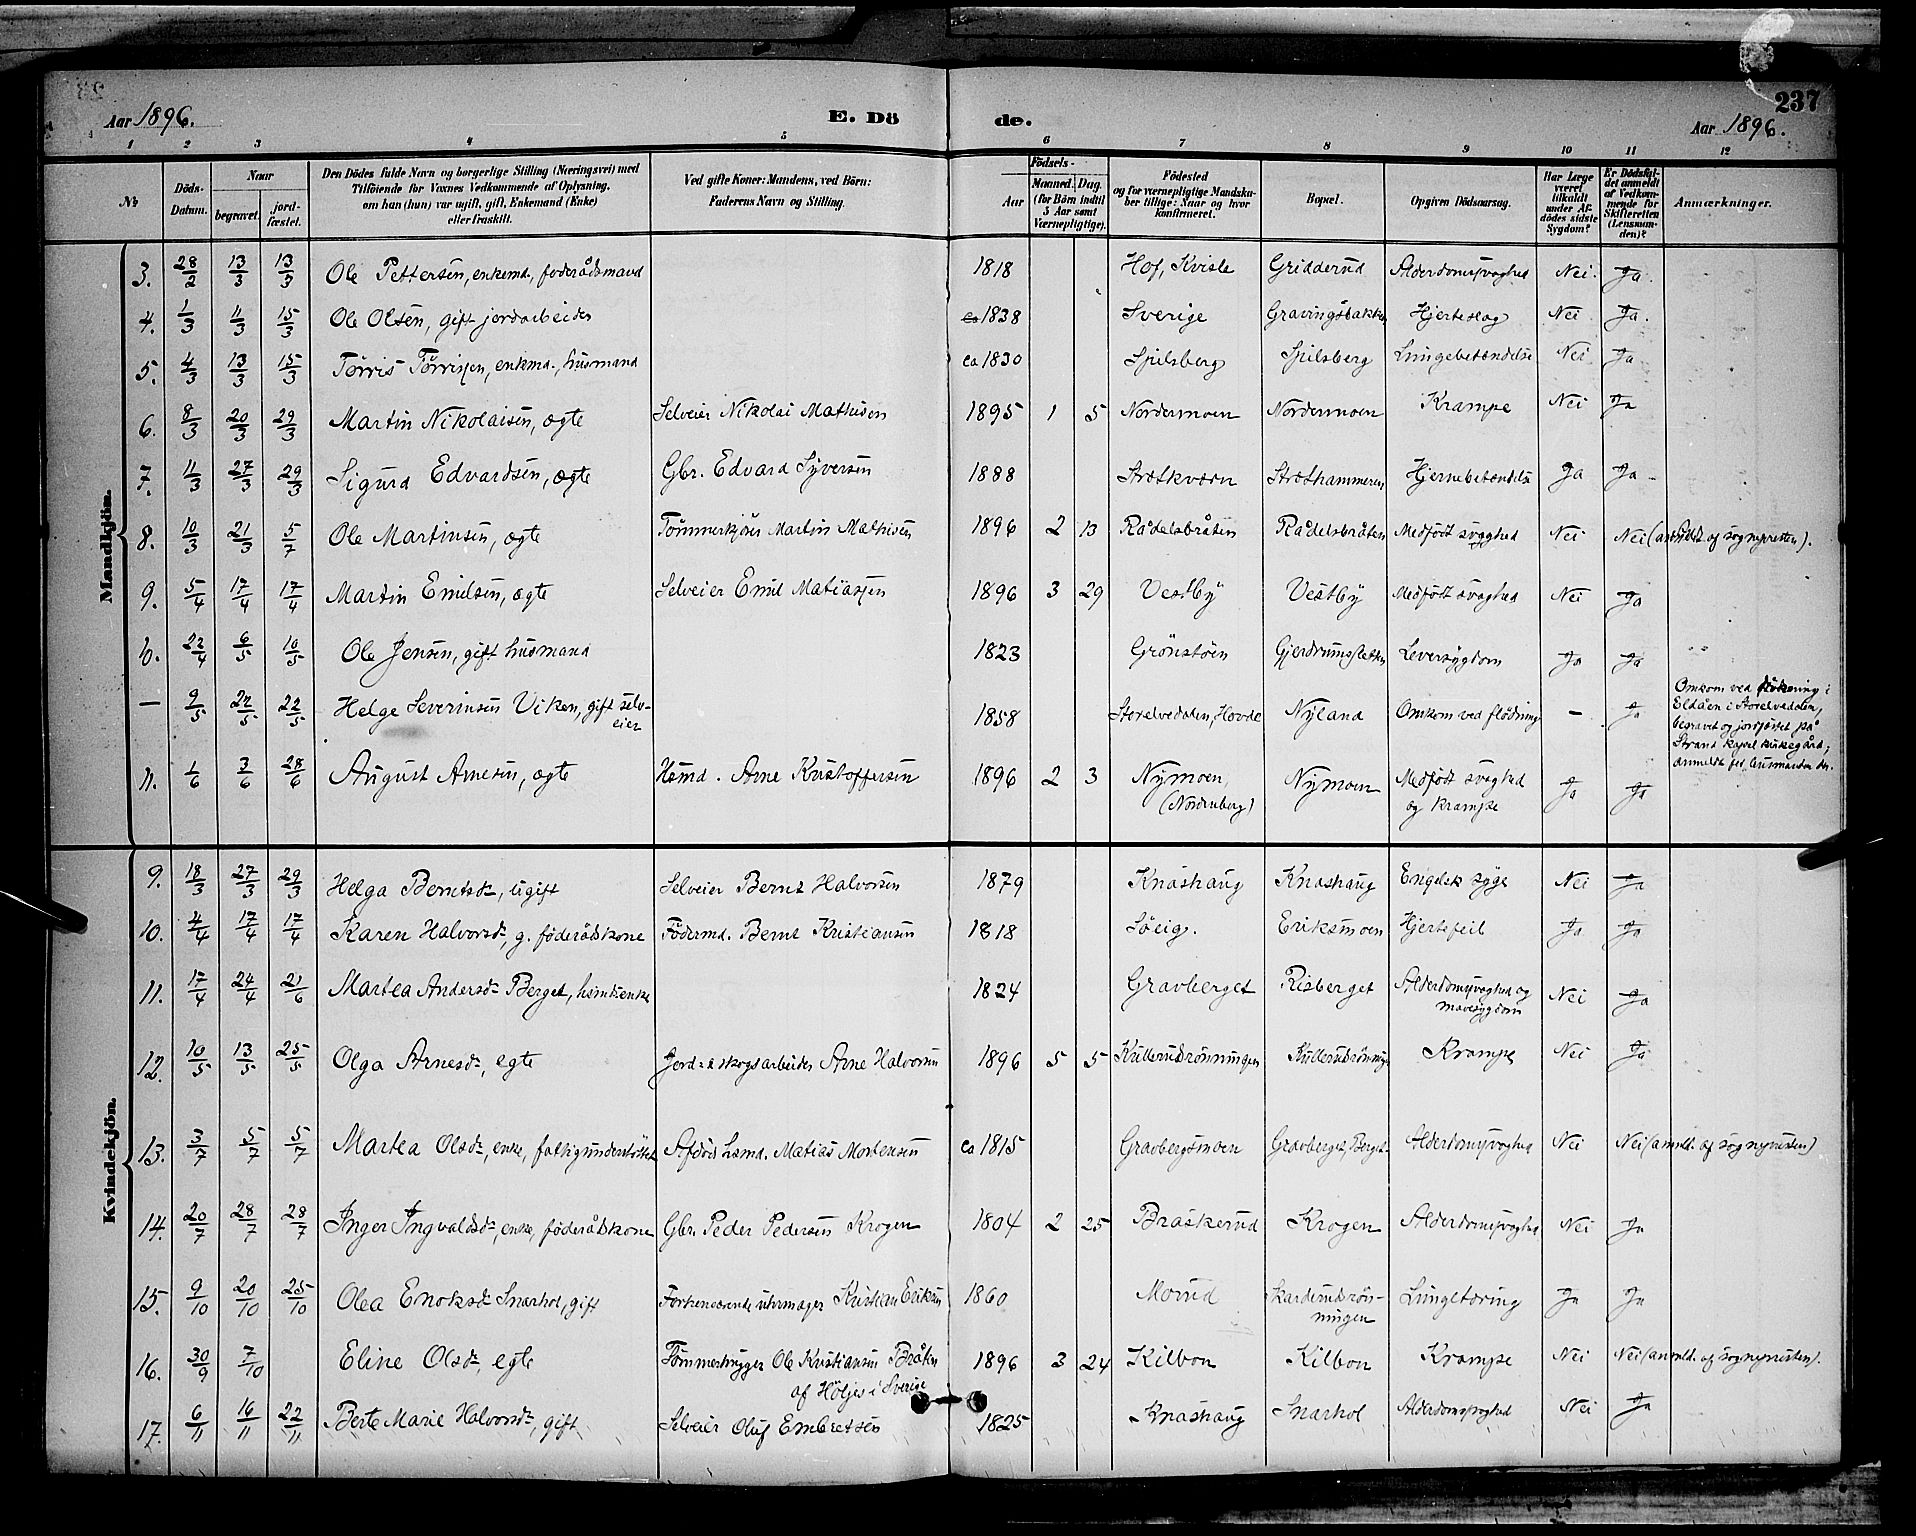 237
Aar 1896. E. Dö de. Aar 1896.
1 2 3 4 5 6 7 8 9 10 11 12
№ Döds-Datum. Naar begravet. jord-fæstet. Den Dödes fulde Navn og borgerlige Stilling (Næringsvei) med Tilföiende for Voxnes Vedkommende af Oplysning, om han (hun) var ugift, gift, Enkemand (Enke) eller fraskilt. Ved gifte Koner: Mandens, ved Börn: Faderens Navn og Stilling. Födsels- Aar Maaned. Dag. (for Börn indtil 5 Aar samt Værnepligtige). Födested og for værnepligtige Mandskaber tillige: Naar og hvor konfirmeret. Bopæl. Opgiven Dödsaarsag. Har Læge været tilkaldt under Afdödes sidste Sygdom? Er Dödsfaldet anmeldt af Vedkommende for Skifteretten (Lensmanden)? Anmærkninger.
Mandkjön.
3. 28/2 13/3 13/3 Ole Pettersen, enkemd., föderådsmand 1818 Hof, Kvisle Gridderud Alderdomssvaghed Nei. Ja.
4. 1/3 11/3 15/3 Ole Olsen, gift jordarbeider ca 1838 Sverige Gravingsbakken Hjerteslag Nei Ja.
5. 4/3 13/3 15/3 Törris Törrissen, enkmd., husmand ca 1830 Spilsberg Spilsberg Lungebetændelse Nei Ja
6. 8/3 20/3 29/3 Martin Nikolaisen, ægte Selveier Nikolai Mathisen 1895 1 5 Nordermoen Nordermoen Krampe Nei Ja
7. 11/3 27/3 29/3 Sigurd Edvardsen, ægte Gbr. Edvard Syversen 1888 Strætkværn Stræthammeren Hjernebetændelse Ja Ja
8. 10/3 21/3 5/7 Ole Martinsen, ægte Tömmerkjörer Martin Mathisen 1896 2 13 Rådelsbråten Rådelsbråten Medfödt svaghed Nei Nei (anmeldt af sognepresten).
9. 5/4 17/4 17/4 Martin Emilsen, ægte Selveier Emil Matiassen 1896 3 29 Vestby Vestby Medfödt svaghed Nei Ja
10. 22/4 6/5 10/5 Ole Jensen, gift husmand 1823 Grönstöen Gjerdrumsletten Leversygdom Ja Ja
— 9/5 22/5 22/5 Helge Severinsen Viken, gift selv-
eier 1858 Storelvedalen, Hovde Nyland Omkom ved flödning — Ja
Omkom ved flödning i
Eldåen i Storelvedalen,
begravet og jordfæstet på
Strand kapel kirkegård;
anmeldt for lensmanden der.
11. 1/6 3/6 28/6 August Arnesen, ægte Husmd. Arne Kristoffersen 1896 2 3 Nymoen, Nymoen Medfödt svaghed Ja Ja
(Nordenberg) og krampe
Kvindekjön.
9. 18/3 27/3 29/3 Helga Berntsdr, ugift Selveier Bernt Halvorsen 1879 Knashaug Knashaug Engelsk syge Nei Ja
10. 4/4 17/4 17/4 Karen Halvorsdr, g. föderådskone Födermd. Bernt Kristiansen 1818 Söeig. Eriksmoen Hjertefeil Ja Ja
11. 17/4 24/4 21/6 Martea Andersdr Berget, husmdsenke 1824 Gravberget Risberget Alderdomssvaghed og Nei Ja
mavesygdom
12. 10/5 13/5 25/5 Olga Arnesdr, egte Jord- & skogsarbeider Arne Halvorsen 1896 5 5 Kullerudrönningen Kullerudrönning. Krampe Nei Ja
13. 3/7 5/7 5/7 Martea Olsdr, enke, fattigunderstöttet Afdöd husmd. Matias Mortensen ca 1815 Gravbergsmoen Gravberget, Berget Alderdomssvaghed Nei Nei (anmeld. af sognepresten)
14. 20/7 28/7 28/7 Inger Ingvaldsdr, enke, föderådskone Gbr. Peder Pedersen Krogen 1804 2 25 Braskerud Krogen Alderdomssvaghed Nei Ja
15. 9/10 20/10 25/10 Olea Enoksdr Snarhol, gift Forhenværende uhrmager Kristian Eriksen 1860 Morud Skarderudsrön- Lungetæring Ja Ja
ningen
16. 30/9 7/10 Eline Olsdr, egte Tömmerhugger Ole Kristiansen Bråten 1896 3 24 Kilbon Kilbon Krampe Nei Nei (anmeld. af sognepresten).
af Höljes i Sverige
17. 6/11 16/11 22/11 Berte Marie Halvorsdr, gift Selveier Oluf Embretsen 1825 Knashaug Snarhol Alderdomssvaghed Nei Ja